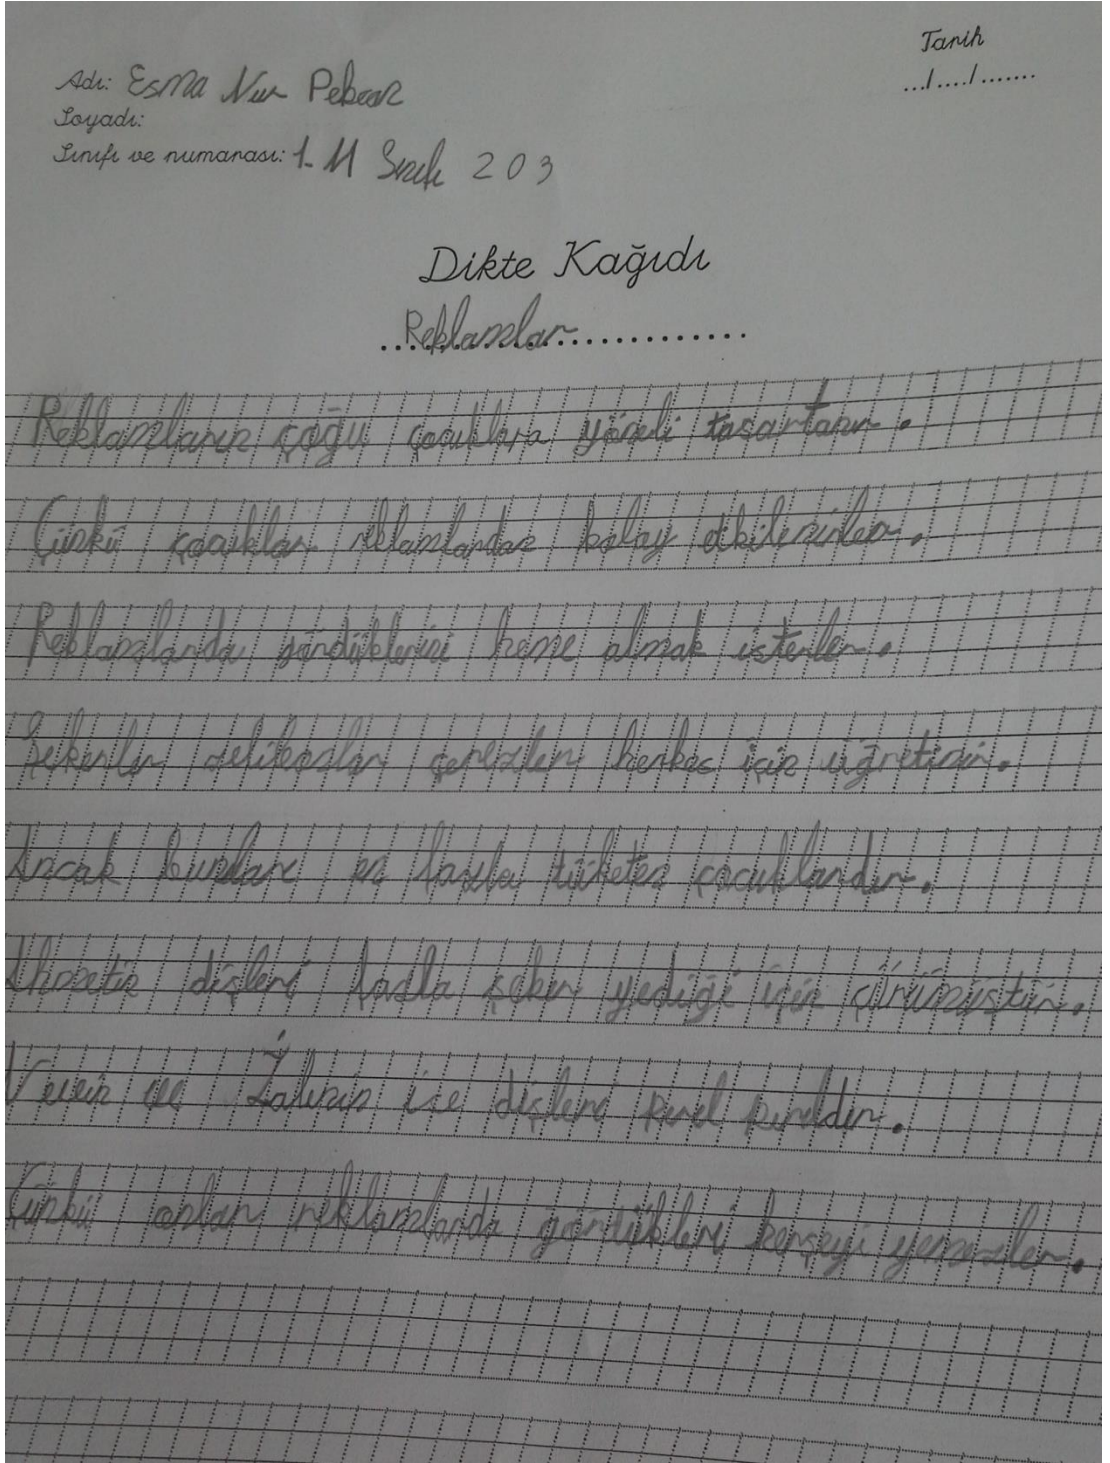 Tarih
.../..../.......
Adı: Esma Nur Pekcan
Soyadı:
Sınıfı ve numarası: 1-M Sınıfı 203
Dikte Kağıdı
Reklamlar
Reklamların çoğu çocuklara yöneli tasartanır.
Çünkü çocuklar reklamlardan kolay etkilenirler.
Reklamlarda gördüklerini heme almak isterler.
Şekerler çerezler herkes için üğretinir.
Ancak bunları en fazla tüketen çocuklardır.
dişleri fazla şeker yediği için çürümüştür.
ise dişleri
Çünkü onlar reklamlarda gördükleri herşeyi yemezler.